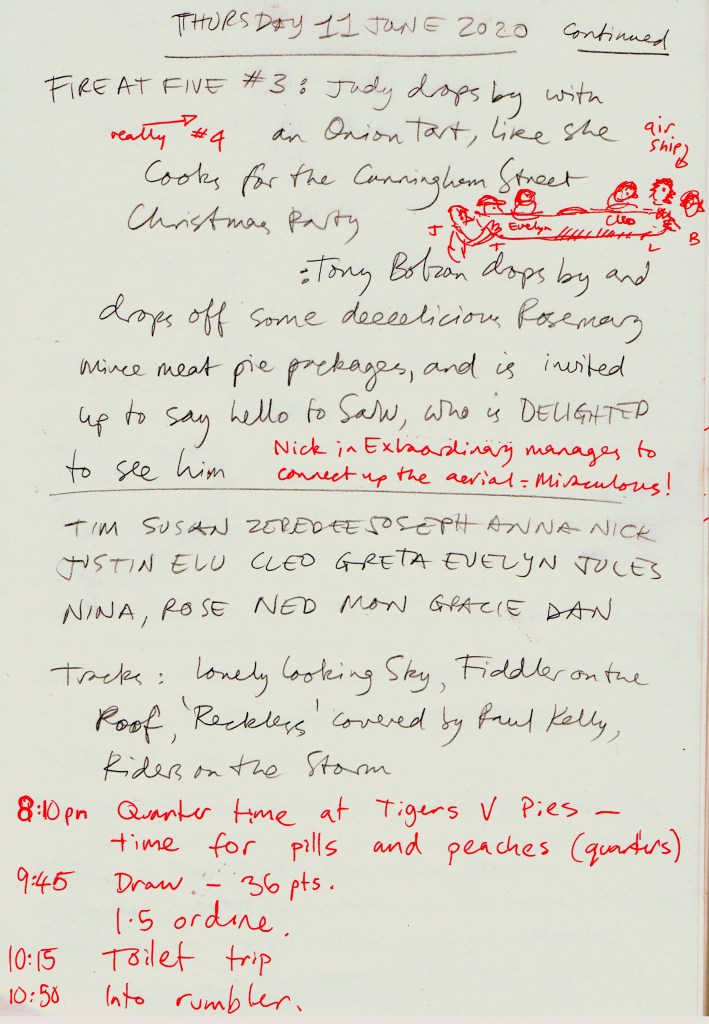 THURSDAY 11 JUNE 2020 continued
FIRE AT FIVE #3: Judy drops by with
really → #4 an Onion Tart, like she
air ship
cooks for the Cunningham Street
Christmas Party
Evelyn Cleo
J T L B
: Tony drops by and
drops off some deeeelicious Rosemary
mince meat pie packages, and is invited
up to say hello to Saw, who is DELIGHTED
to see him
Nick in Extraordinary manages to
connect up the aerial - Miraculous!
TIM SUSAN ZEBEDEE JOSEPH ANNA NICK
JUSTIN ELU CLEO GRETA EVELYN JULES
NINA, ROSE NED MON GRACIE DAN
Tracks: Lonely Looking Sky, Fiddler on the
Roof, 'Reckless' covered by Paul Kelly,
Riders on the Storm
8:10pm Quarter time at Tigers V Pies —
time for pills and peaches (quarters)
9:45 Draw – 36 pts.
1.5 ordine.
10:15 Toilet trip
10:50 Into rumbler.